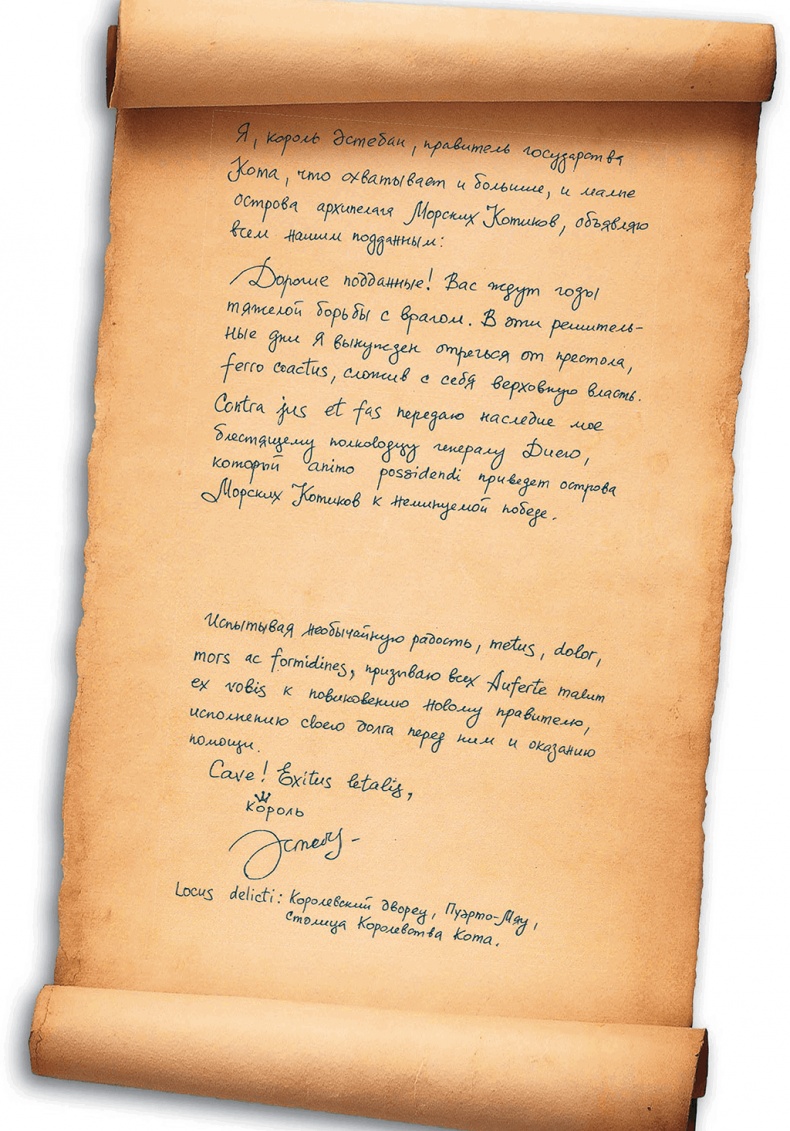 Я, король Эстебан, правитель государства
Кота, что охватывает и большие, и малые
острова архипелага Морских Котиков, объявляю
всем нашим подданным:
Дорогие подданные! Вас ждут годы
тяжелой борьбы с врагом. В эти решитель-
ные дни я вынужден отречься от престола,
ferro coactus, сложив с себя верховную власть.
Contra jus et fas передаю наследие мое
блестящему полководцу генералу Диего,
который animo possidendi приведет острова
Морских Котиков к неминуемой победе.
Испытывая необычайную радость, metus, dolor,
mors ac formidines, призываю всех Auferte malum
ex vobis к повиновению новому правителю,
исполнению своего долга перед ним и оказанию
помощи.
Cave! Exitus letalis,
король
Locus delicti: Королевский дворец, Пуэрто-Мяу,
столица Королевства Кота.